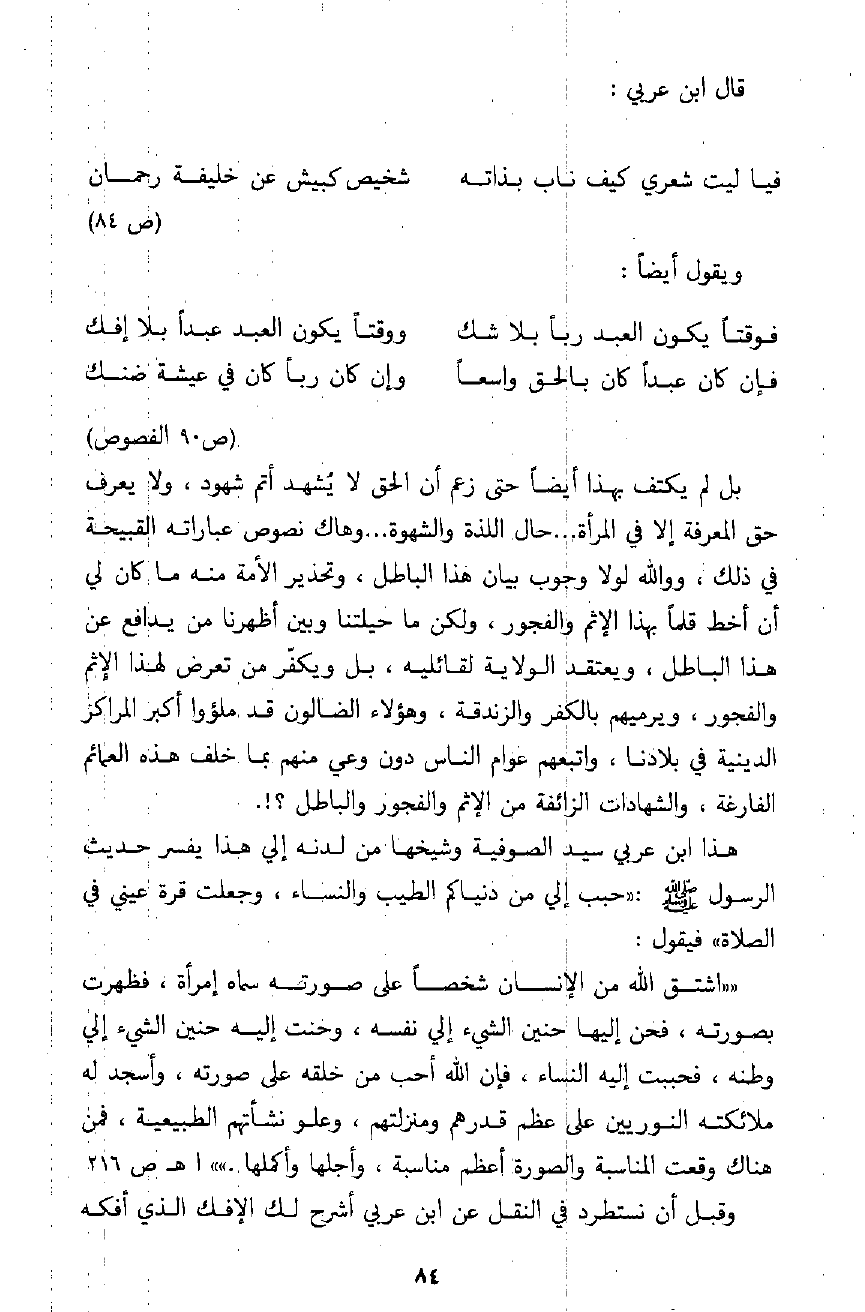 قال ابن عربي :
فيا ليت شعري كيف ناب بذاته شخيص كبيش عن خليفة رحمان
(ص ٨٤)
ويقول أيضاً :
فوقتاً يكون العبد رباً بلا شك ووقتاً يكون العبد عبداً بلا إفك
فإن كان عبداً كان بالحق واسعاً وإن كان رباً كان في عيشة ضنك
(ص٩٠ الفصوص)
بل لم يكتف بهذا أيضاً حتى زعم أن الحق لا يُشهد أتم شهود ، ولا يعرف
حق المعرفة إلا في المرأة...حال اللذة والشهوة...وهاك نصوص عباراته القبيحة
في ذلك ، ووالله لولا وجوب بيان هذا الباطل ، وتحذير الأمة منه ما كان لي
أن أخط قلماً بهذا الإثم والفجور ، ولكن ما حيلتنا وبين أظهرنا من يدافع عن
هذا الباطل ، ويعتقد الولاية لقائليه ، بل ويكفّر من تعرض لهذا الإثم
والفجور ، ويرميهم بالكفر والزندقة ، وهؤلاء الضالون قد ملؤوا أكبر المراكز
الدينية في بلادنا ، واتبعهم عوام الناس دون وعي منهم بما خلف هذه العمائم
الفارغة ، والشهادات الزائفة من الإثم والفجور والباطل ؟!.
هذا ابن عربي سيد الصوفية وشيخها من لدنه إلي هذا يفسر حديث
الرسول ﷺ :«حبب إلي من دنياكم الطيب والنساء ، وجعلت قرة عيني في
الصلاة» فيقول :
««اشتق الله من الإنسان شخصاً على صورته سماه إمرأة ، فظهرت
بصورته ، فحن إليها حنين الشيء إلي نفسه ، وحنت إليه حنين الشيء إلي
وطنه ، فحببت إليه النساء ، فإن الله أحب من خلقه على صورته ، وأسجد له
ملائكته النوريين على عظم قدرهم ومنزلتهم ، وعلو نشأتهم الطبيعية ، فمن
هناك وقعت المناسبة والصورة أعظم مناسبة ، وأجلها وأكملها .»» ا هـ ص ٢١٦
وقبل أن نستطرد في النقل عن ابن عربي أشرح لك الإفك الذي أفكه
٨٤